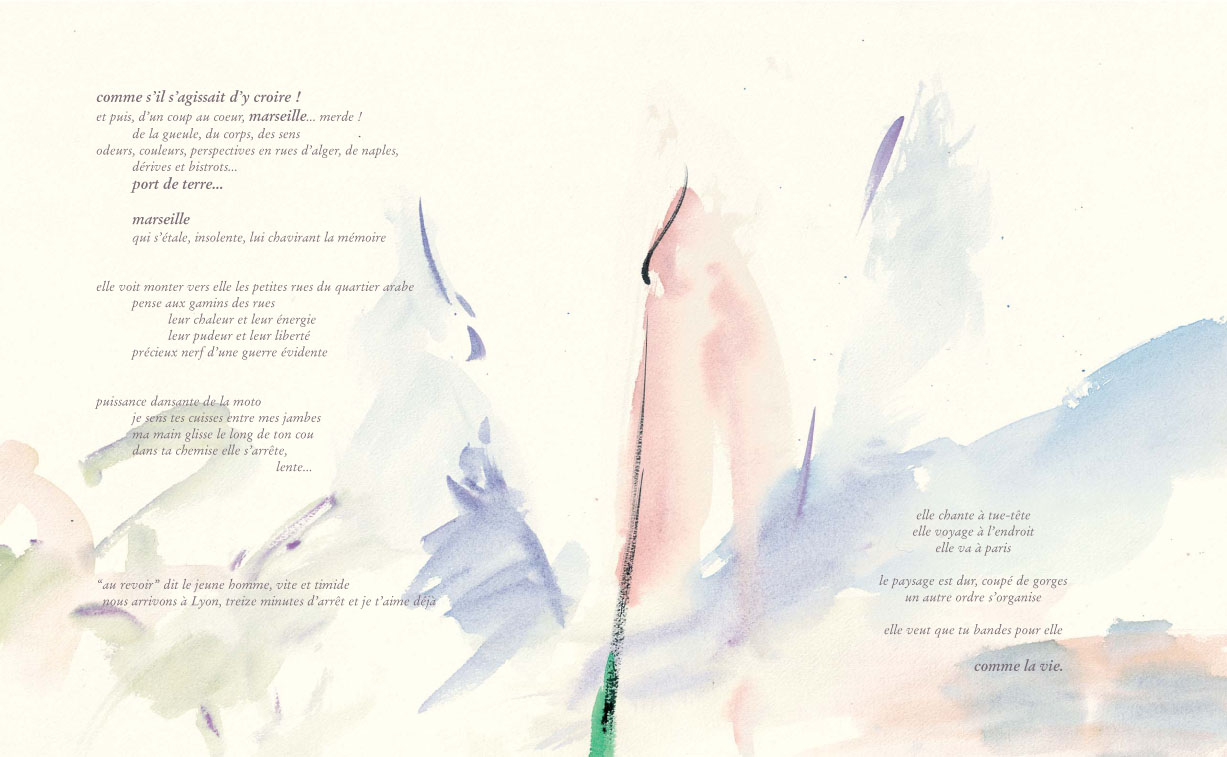 comme s'il s'agissait d'y croire !
et puis, d'un coup au coeur, marseille... merde !
de la gueule, du corps, des sens .
odeurs, couleurs, perspectives en rues d'alger, de naples,
dérives et bistrots...
port de terre...
marseille
qui s'étale, insolente, lui chavirant la mémoire
elle voit monter vers elle les petites rues du quartier arabe
pense aux gamins des rues
leur chaleur et leur énergie
leur pudeur et leur liberté
précieux nerf d'une guerre évidente
puissance dansante de la moto
je sens tes cuisses entre mes jambes
ma main glisse le long de ton cou
dans ta chemise elle s'arrête,
lente...
“au revoir” dit le jeune homme, vite et timide
nous arrivons à Lyon, treize minutes d'arrêt et je t'aime déjà
elle chante à tue-tête
elle voyage à l'endroit
elle va à paris
le paysage est dur, coupé de gorges
un autre ordre s'organise
elle veut que tu bandes pour elle
comme la vie.